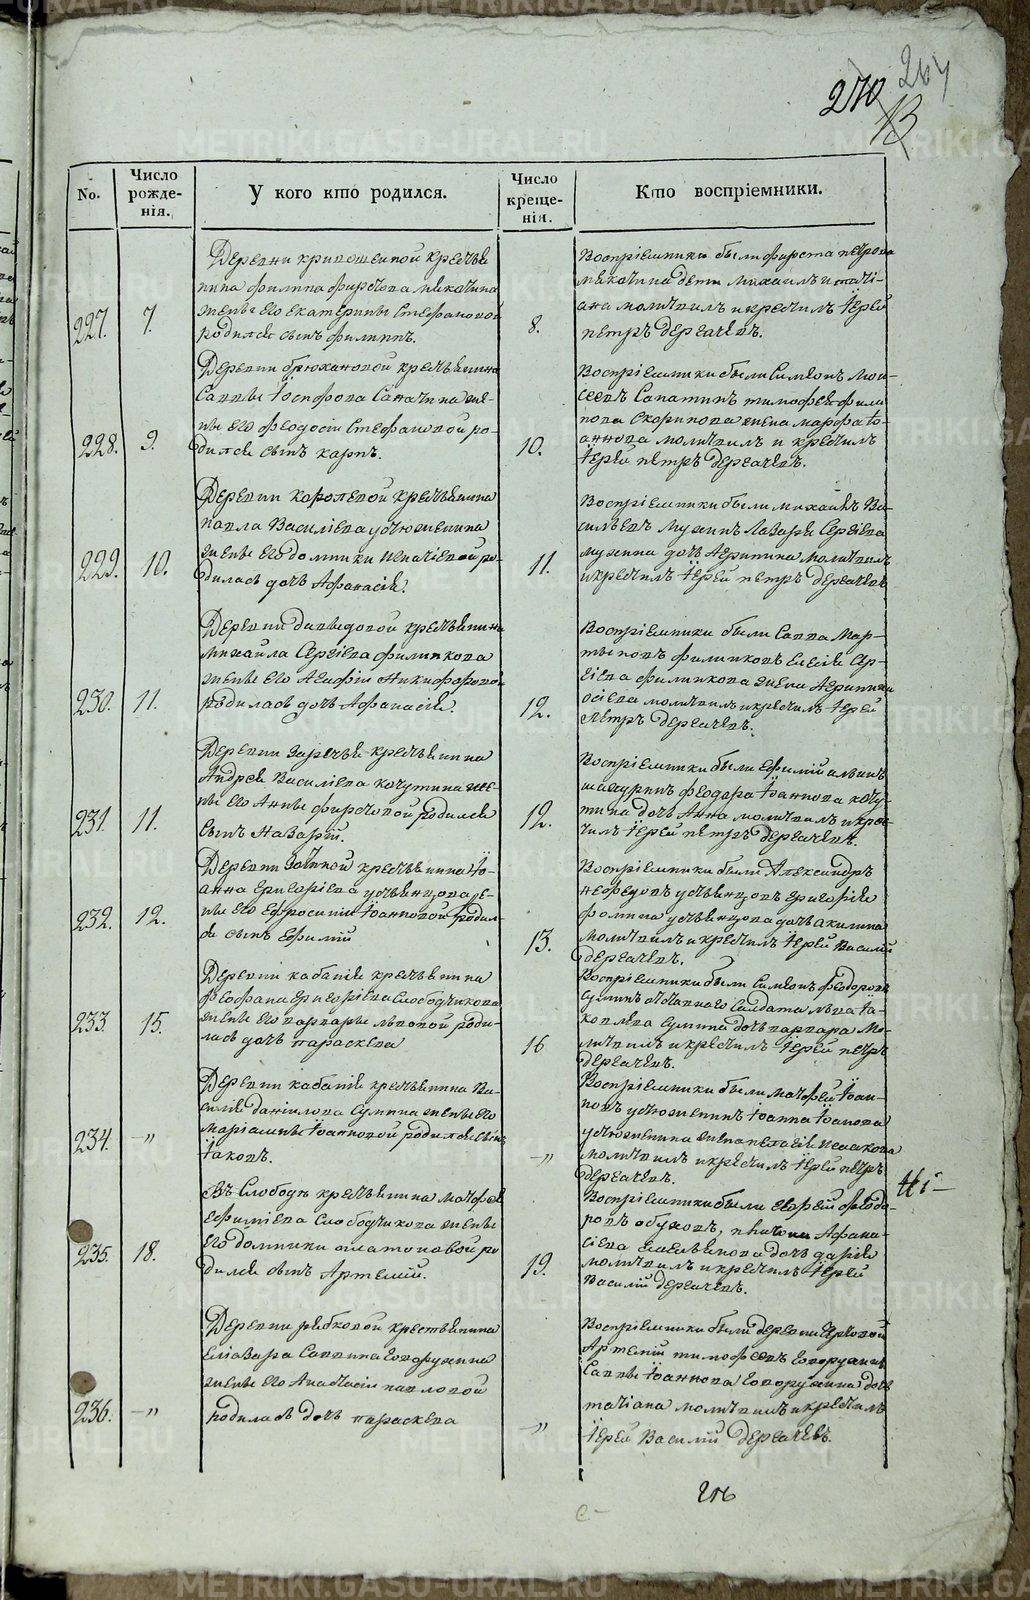 270 264
13
No.
Число рожде-нія.
У кого кто родился.
Число креще-нія.
Кто воспріемники.
227.
7.
Деревни кривошеиной крестья
нина филипа фирсова
жены его екатерины Стефановой
родился сынъ филиппъ.
8.
Воспріемники были фирста петрова
дети михаилъ и татi-
ана молитвилъ и крестилъ Іерей
петръ дергачевъ.
228.
9.
Деревни брюхановой крестьянина
Саввы Іосифова Саначина же-
ны его феодосiи Стефановой ро-
дился сынъ карпъ.
10.
Воспріемники были Симеонъ мои-
сеевъ тимофея фили
пова жена марфа Іо-
аннова молитвилъ и крестилъ
Іерей петръ дергачевъ.
229.
10.
Деревни королевой крестьянина
павла Василіева устюжанина
жены его домники игнатіевой ро-
дилась дочь Афанасія.
11.
Воспріемники были михаилъ Ва-
сильевъ Лазаря Сергіева
дочь Агрипина молитвилъ
и крестилъ Іерей петръ дергачевъ
230.
11.
Деревни давыдовой крестьянина
михайла Сергіева филинкова
жены его Агафіи Никифоровой
родилась дочь Афанасія.
12.
Воспріемники были Савва Мар-
тыновъ филинковъ Елесія Сер-
гіева филинкова жена Агрипина
молитвилъ и крестилъ Іерей
петръ дергачевъ.
231.
11.
Деревни заречья крестьянина
Андрея Василіева кочутина же-
ны его Анны фирсовой родился
сынъ Назарій.
12.
Воспріемники были Ефимій
феодора Іоаннова кочу-
тина дочь Анна молитвилъ и крес-
тилъ Іерей петръ дергачевъ.
232.
12.
Деревни крестьянина Іо-
анна григоріева устьянцова же-
ны его Ефросиніи Іоанновой родил-
ся сынъ Ефимій
13.
Воспріемники были Александръ
нефедовъ устьянцовъ григорія
фомина устьянцова дочь акилина
молитвилъ и крестилъ Іерей Василій
дергачевъ.
233.
15.
Деревни кабаньи крестьянина
феофана григоріева Слободчикова
жены его варвары львовой роди-
лась дочь параскева
16
Воспріемники были Симеонъ феодоровъ
Суминъ Солдата льва Іа-
ковлева Сумина дочь варвара мо-
литвилъ и крестилъ Іерей петръ
дергачевъ.
234.
—„
Деревни кабаньи крестьянина Ва-
силія даніилова Сумина жены его
маріамны Іоанновой родился сынъ
Іаковъ.
—„
Воспріемники были матфей Іоан-
новъ устюжанинъ Іоанна Іоанова
устюжанина жена пелагія исаакова
молитвилъ и крестилъ Іерей петръ
дергачевъ.
235.
18.
Въ Слободе крестьянина матфея
Ефиміева Слободчикова жены
его домники платоновой ро
дился сынъ Артемій.
19.
Воспріемники были феодо-
ровъ обуховъ, никиты Афана-
сіева дочь дарія
молитвилъ и крестилъ Іерей
Василій дергачевъ.
236.
—„
Деревни рябковой крестьянина
Елеазара Саввина говорухина
жены его Анастасіи павловой
родилась дочь параскева
„
Воспріемники были деревни
Артемій тимофеевъ говорухинъ
Саввы Іоаннова говорухина дочь
татіана молитвилъ и крестилъ
Іерей Василій дергачевъ.